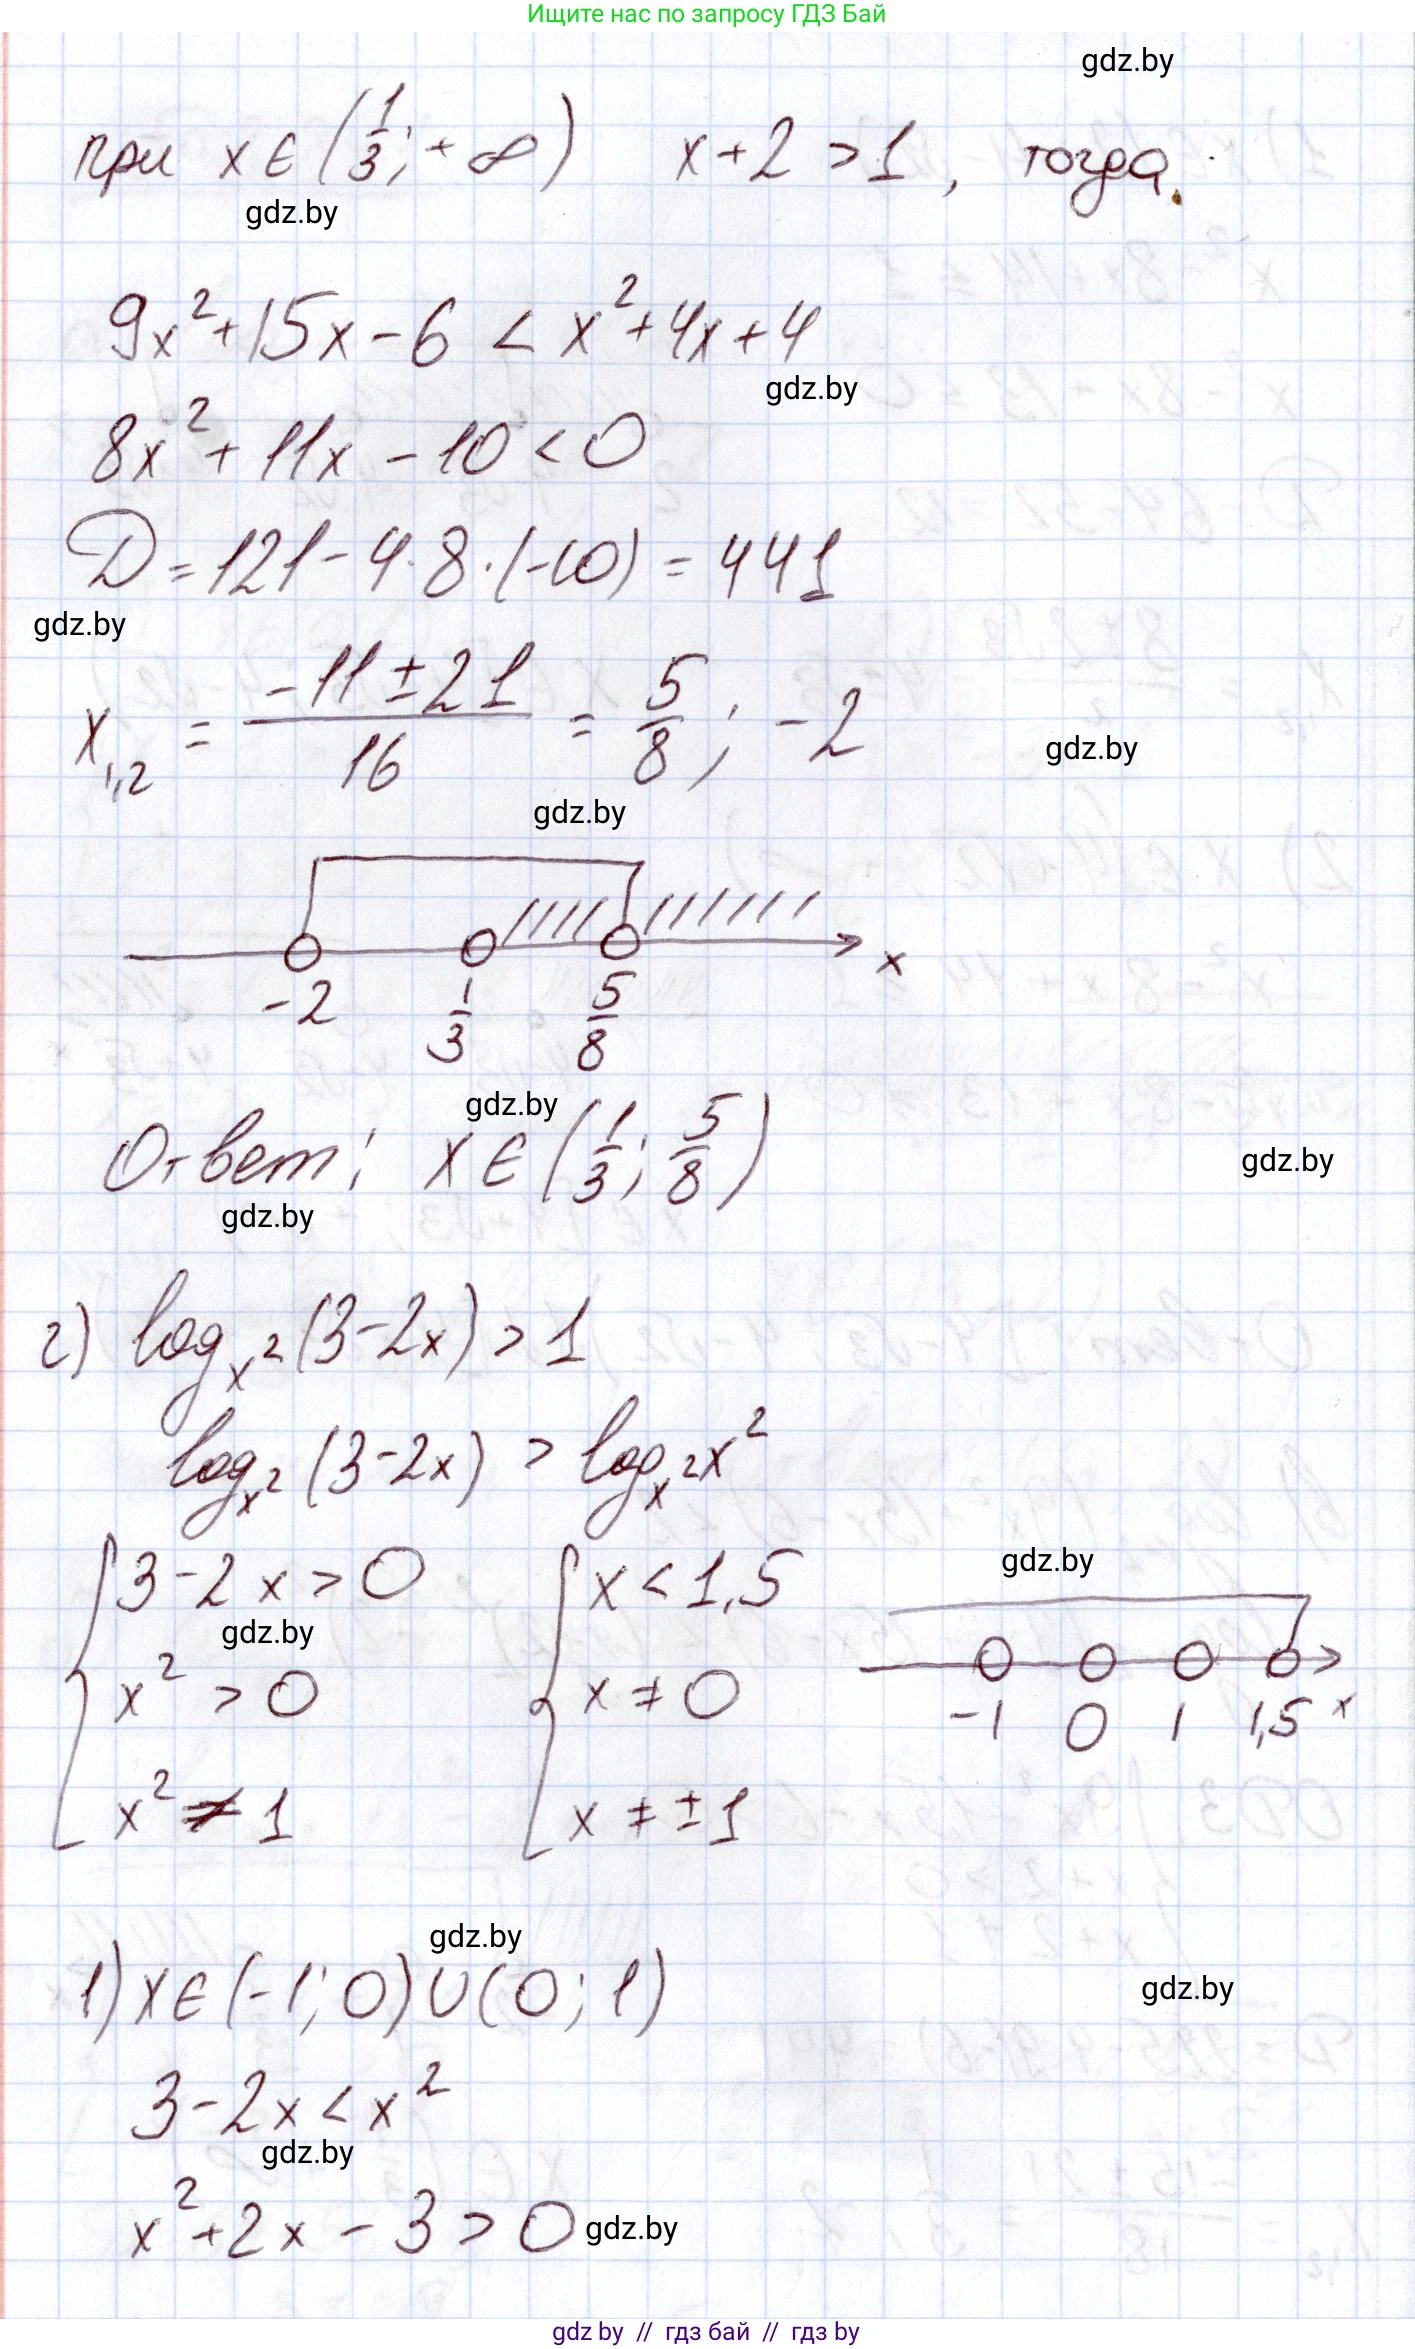 Ищите нас по запросу ГДЗ Бай
gdz.by
при x ∈ (1/3; +∞) x+2 > 1, тогда
gdz.by
9x² + 15x - 6 < x² + 4x + 4
gdz.by
8x² + 11x - 10 < 0
D = 121 - 4·8·(-10) = 441
gdz.by
x₁,₂ = (-11 ± 21)/16 = 5/8; -2
gdz.by
gdz.by
x
-2 1/3 5/8
gdz.by
Ответ: x ∈ (1/3; 5/8)
gdz.by
gdz.by
г) log_{x²}(3-2x) > 1
log_{x²}(3-2x) > log_{x²} x²
gdz.by
{ 3-2x > 0 { x < 1,5
gdz.by
x² > 0 x ≠ 0
-1 0 1 1,5 x
x² ≠ 1 x ≠ ±1
gdz.by
1) x ∈ (-1; 0) ∪ (0; 1)
gdz.by
3-2x < x²
gdz.by
x² + 2x - 3 > 0
gdz.by
gdz by // гдз бай // гдз by